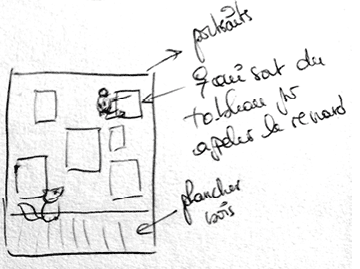 portraits
♀ qui sort du
tableau pr
appeler le renard
plancher
bois